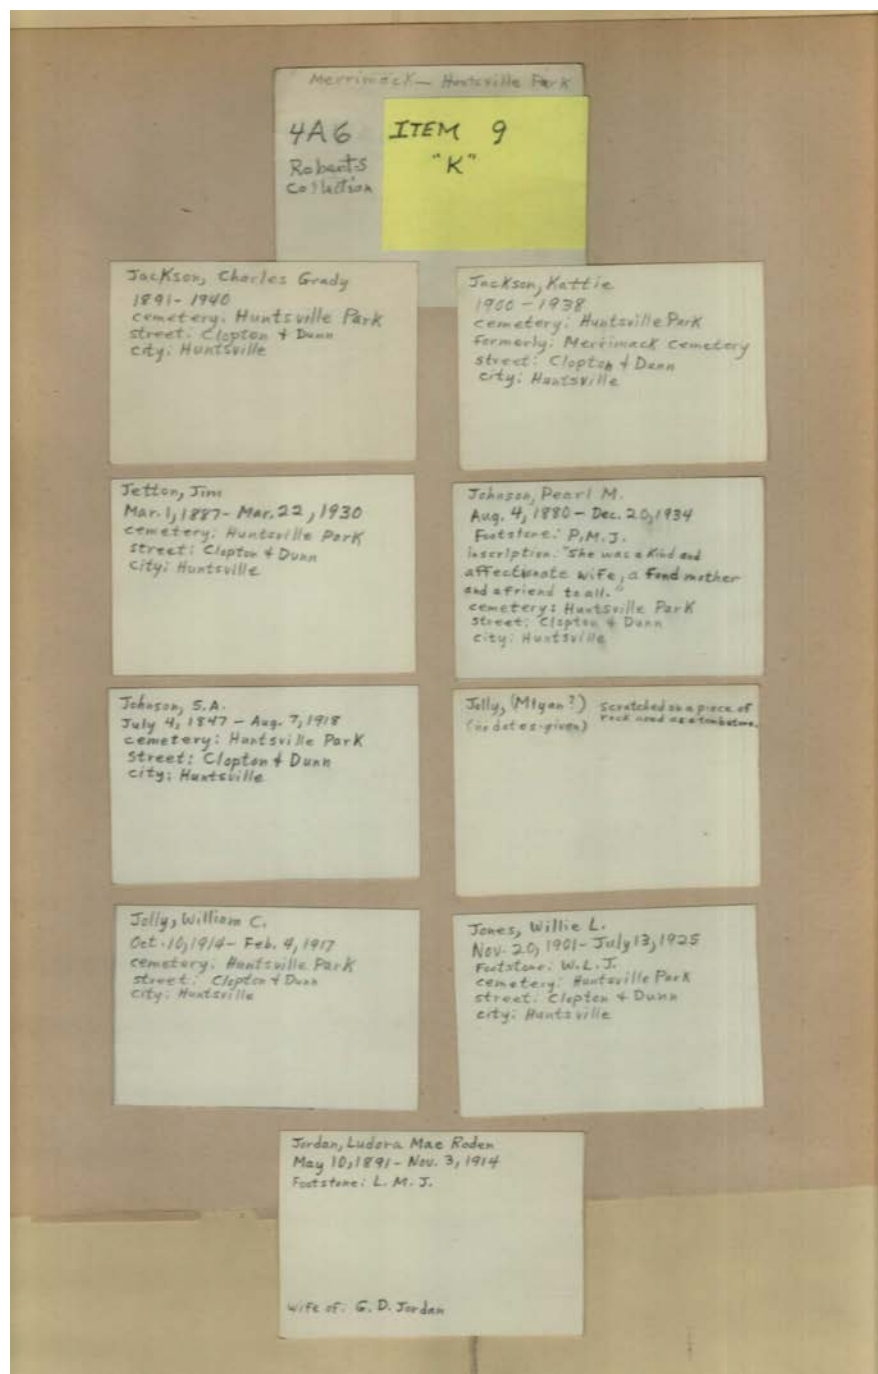 Merrimack - Huntsville Park
4A6
Roberts
Collection
ITEM 9
"K"
Jackson, Charles Grady
1891 - 1940
cemetery: Huntsville Park
street: Clopton + Dunn
city: Huntsville
Jackson, Kattie
1900 - 1938
cemetery: Huntsville Park
formerly: Merrimack Cemetery
street: Clopton + Dunn
city: Huntsville
Jetton, Jim
Mar. 1, 1887 - Mar. 22, 1930
cemetery: Huntsville Park
street: Clopton + Dunn
city: Huntsville
Johnson, Pearl M.
Aug. 4, 1880 - Dec. 20, 1934
Footstone: P.M.J.
inscription: "She was a kind and
affectionate wife, a fond mother
and a friend to all."
cemetery: Huntsville Park
street: Clopton + Dunn
city: Huntsville
Johnson, S.A.
July 4, 1847 - Aug. 7, 1918
cemetery: Huntsville Park
street: Clopton + Dunn
city: Huntsville
Jolly, (Mtyan?) scratched on a piece of
rock used as a tombstone.
(no dates given)
Jolly, William C.
Oct. 10, 1914 - Feb. 4, 1917
cemetery: Huntsville Park
street: Clopton + Dunn
city: Huntsville
Jones, Willie L.
Nov. 20, 1901 - July 13, 1925
Footstone: W.L.J.
cemetery: Huntsville Park
street: Clopton + Dunn
city: Huntsville
Jordan, Ludora Mae Roden
May 10, 1891 - Nov. 3, 1914
Footstone: L.M.J.
wife of: G.D. Jordan